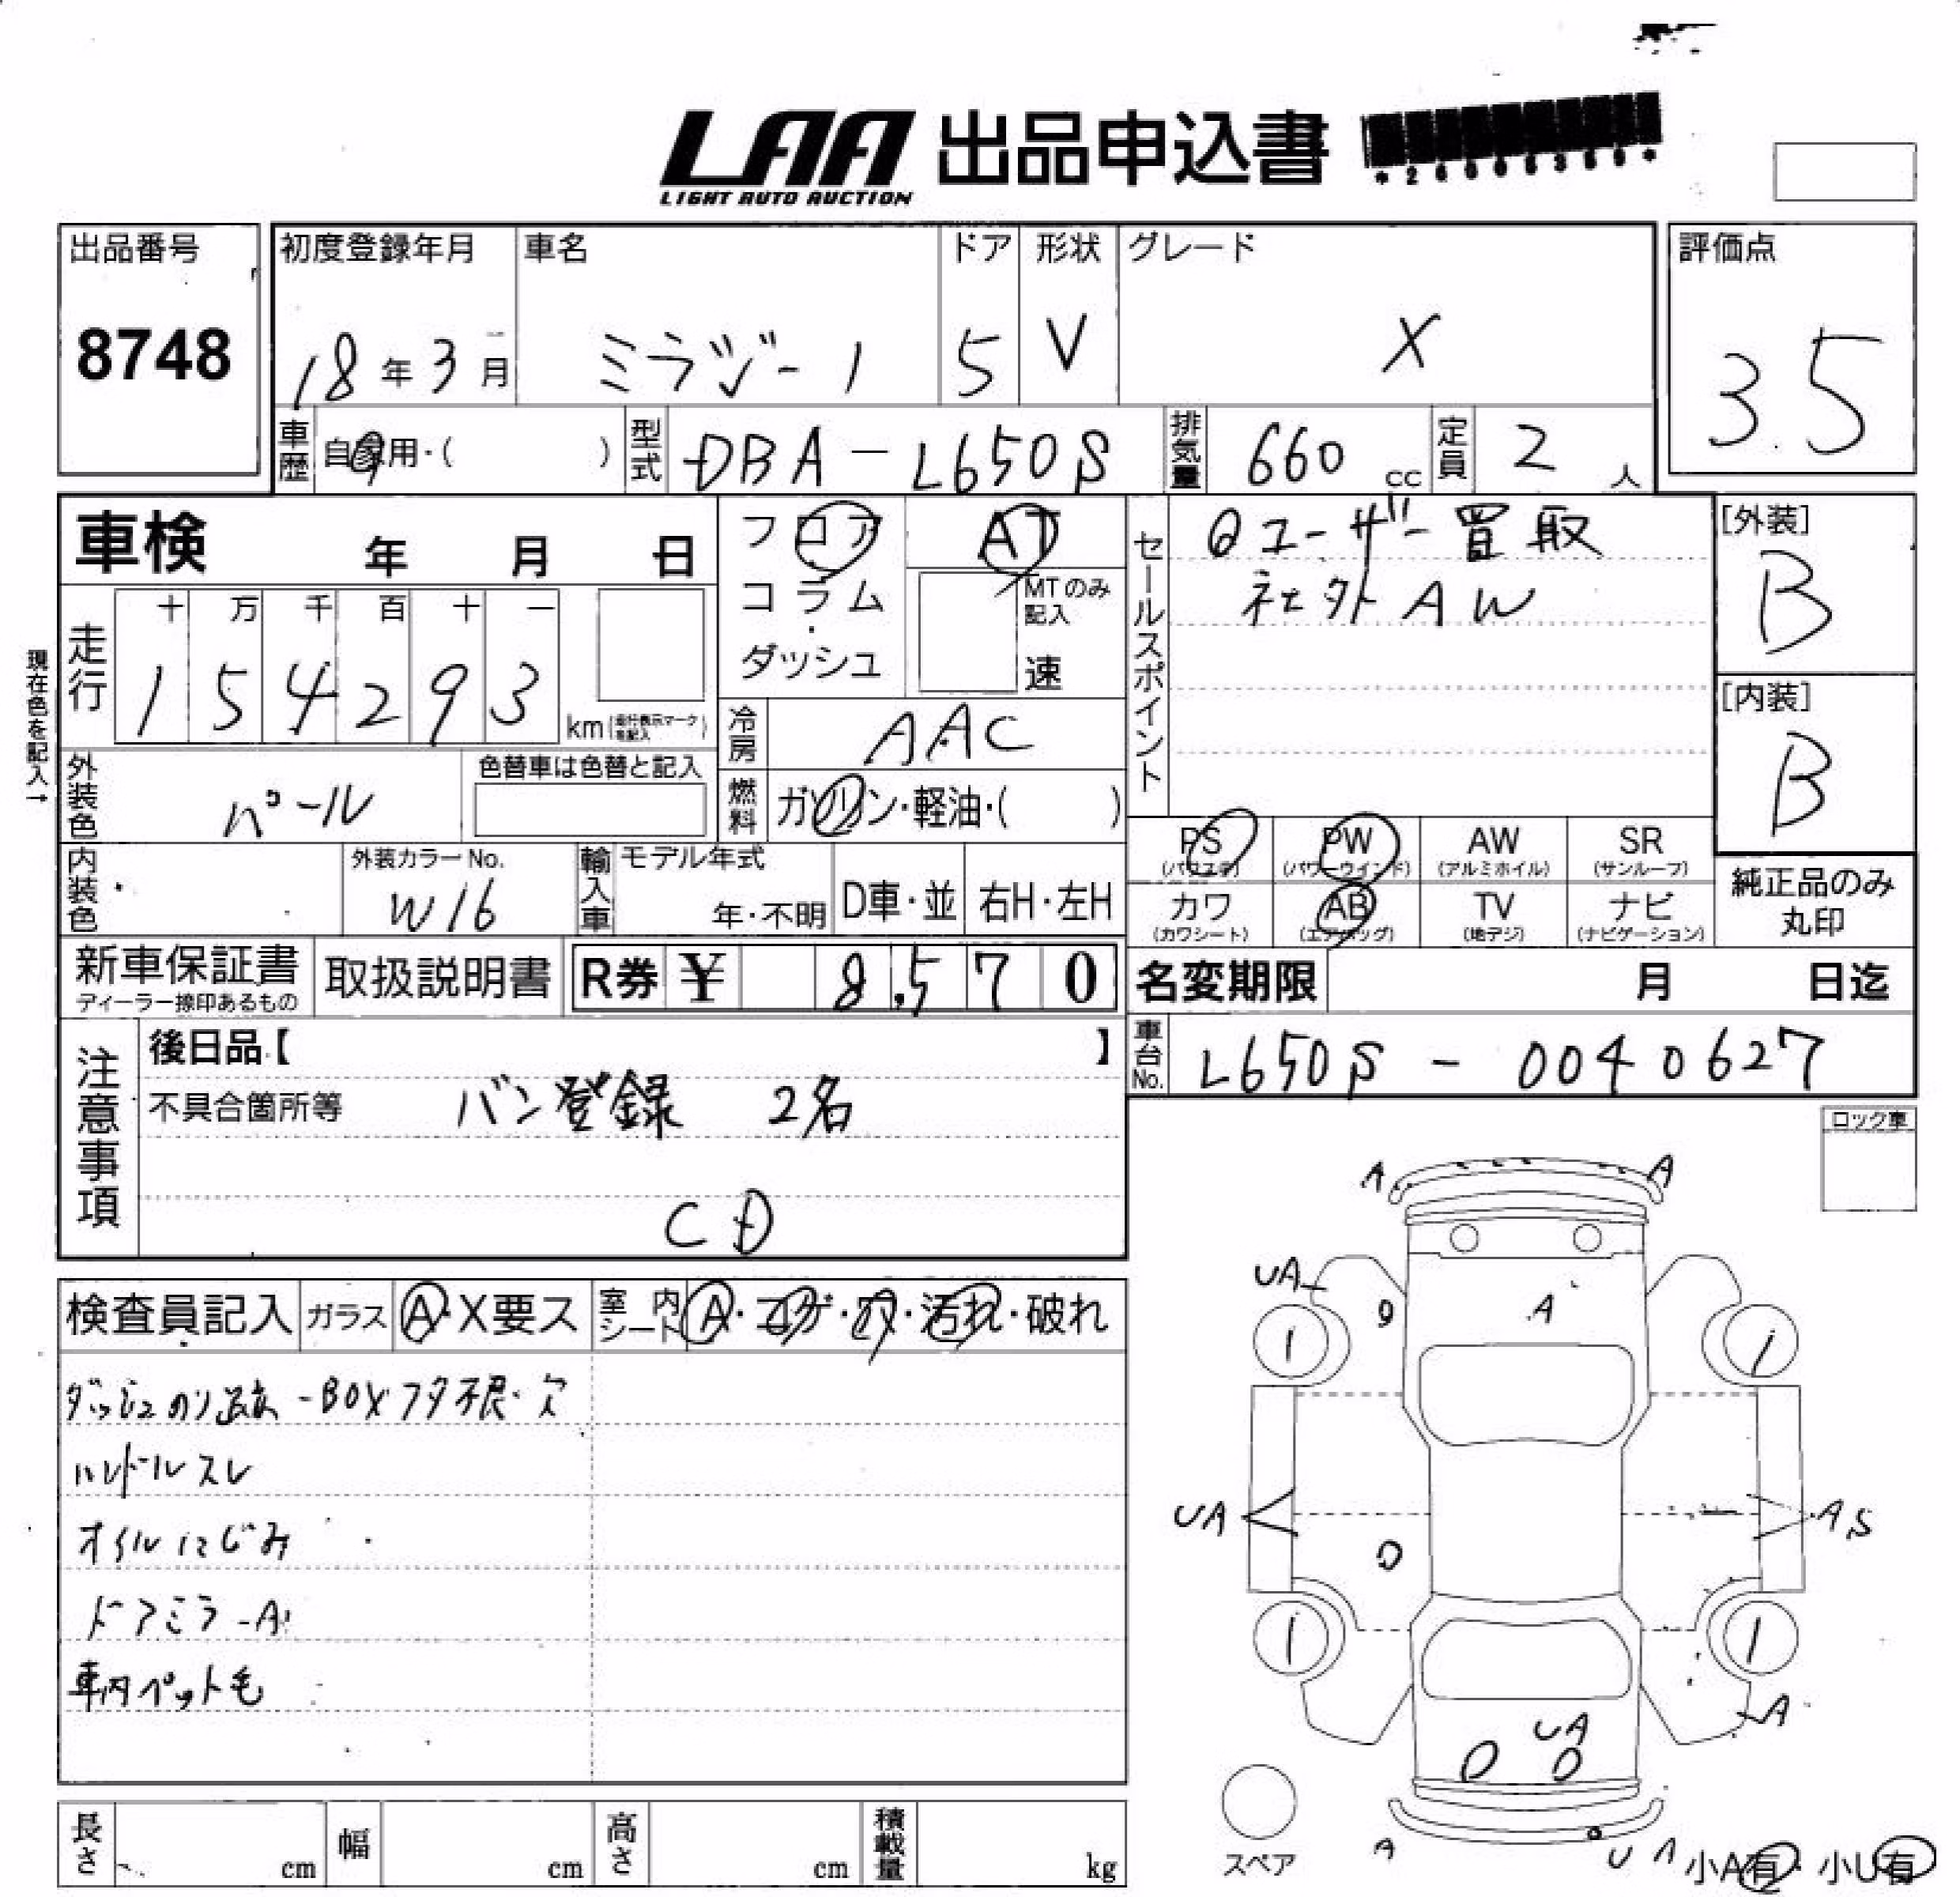 LAA 出品申込書
LIGHT AUTO AUCTION
出品番号
8748
初度登録年月
18年3月
車名
ミラジーノ
ドア
5
形状
V
グレード
X
評価点
3.5
車歴
自家用・( )
型式
DBA-L650S
排気量
660 cc
定員
2 人
車検 年 月 日
フロア
コラム
・
ダッシュ
AT
MTのみ記入
速
現在色を記入→
走行
十 万 千 百 十 一
1 5 4 2 9 3
km(走行表示マークを記入)
冷房
AAC
燃料
ガソリン・軽油・( )
外装色
パール
色替車は色替と記入
内装色
外装カラーNo.
W16
輸入車
モデル年式
年・不明
D車・並
右H・左H
セールスポイント
ユーザー買取
社外AW
[外装]
B
[内装]
B
PS
(パワステ)
PW
(パワーウインド)
AW
(アルミホイル)
SR
(サンルーフ)
カワ
(カワシート)
AB
(エアバッグ)
TV
(地デジ)
ナビ
(ナビゲーション)
純正品のみ
丸印
新車保証書
ディーラー捺印あるもの
取扱説明書
R券 ¥ 8,570
名変期限 月 日迄
車台No.
L650S - 0040627
注意事項
後日品【 】
不具合箇所等 バン登録 2名
CD
ロック車
検査員記入
ガラス
A・X要ス
室内シート
A・コゲ・穴・汚れ・破れ
ダッシュのり跡 -BOXフタ不良・欠
ハンドルスレ
オイルにじみ
ドアミラーA
車内ペット毛
A A
UA
A
UA
AS
A
UA
A UA
スペア
小A有・小U有
長さ cm
幅 cm
高さ cm
積載量 kg